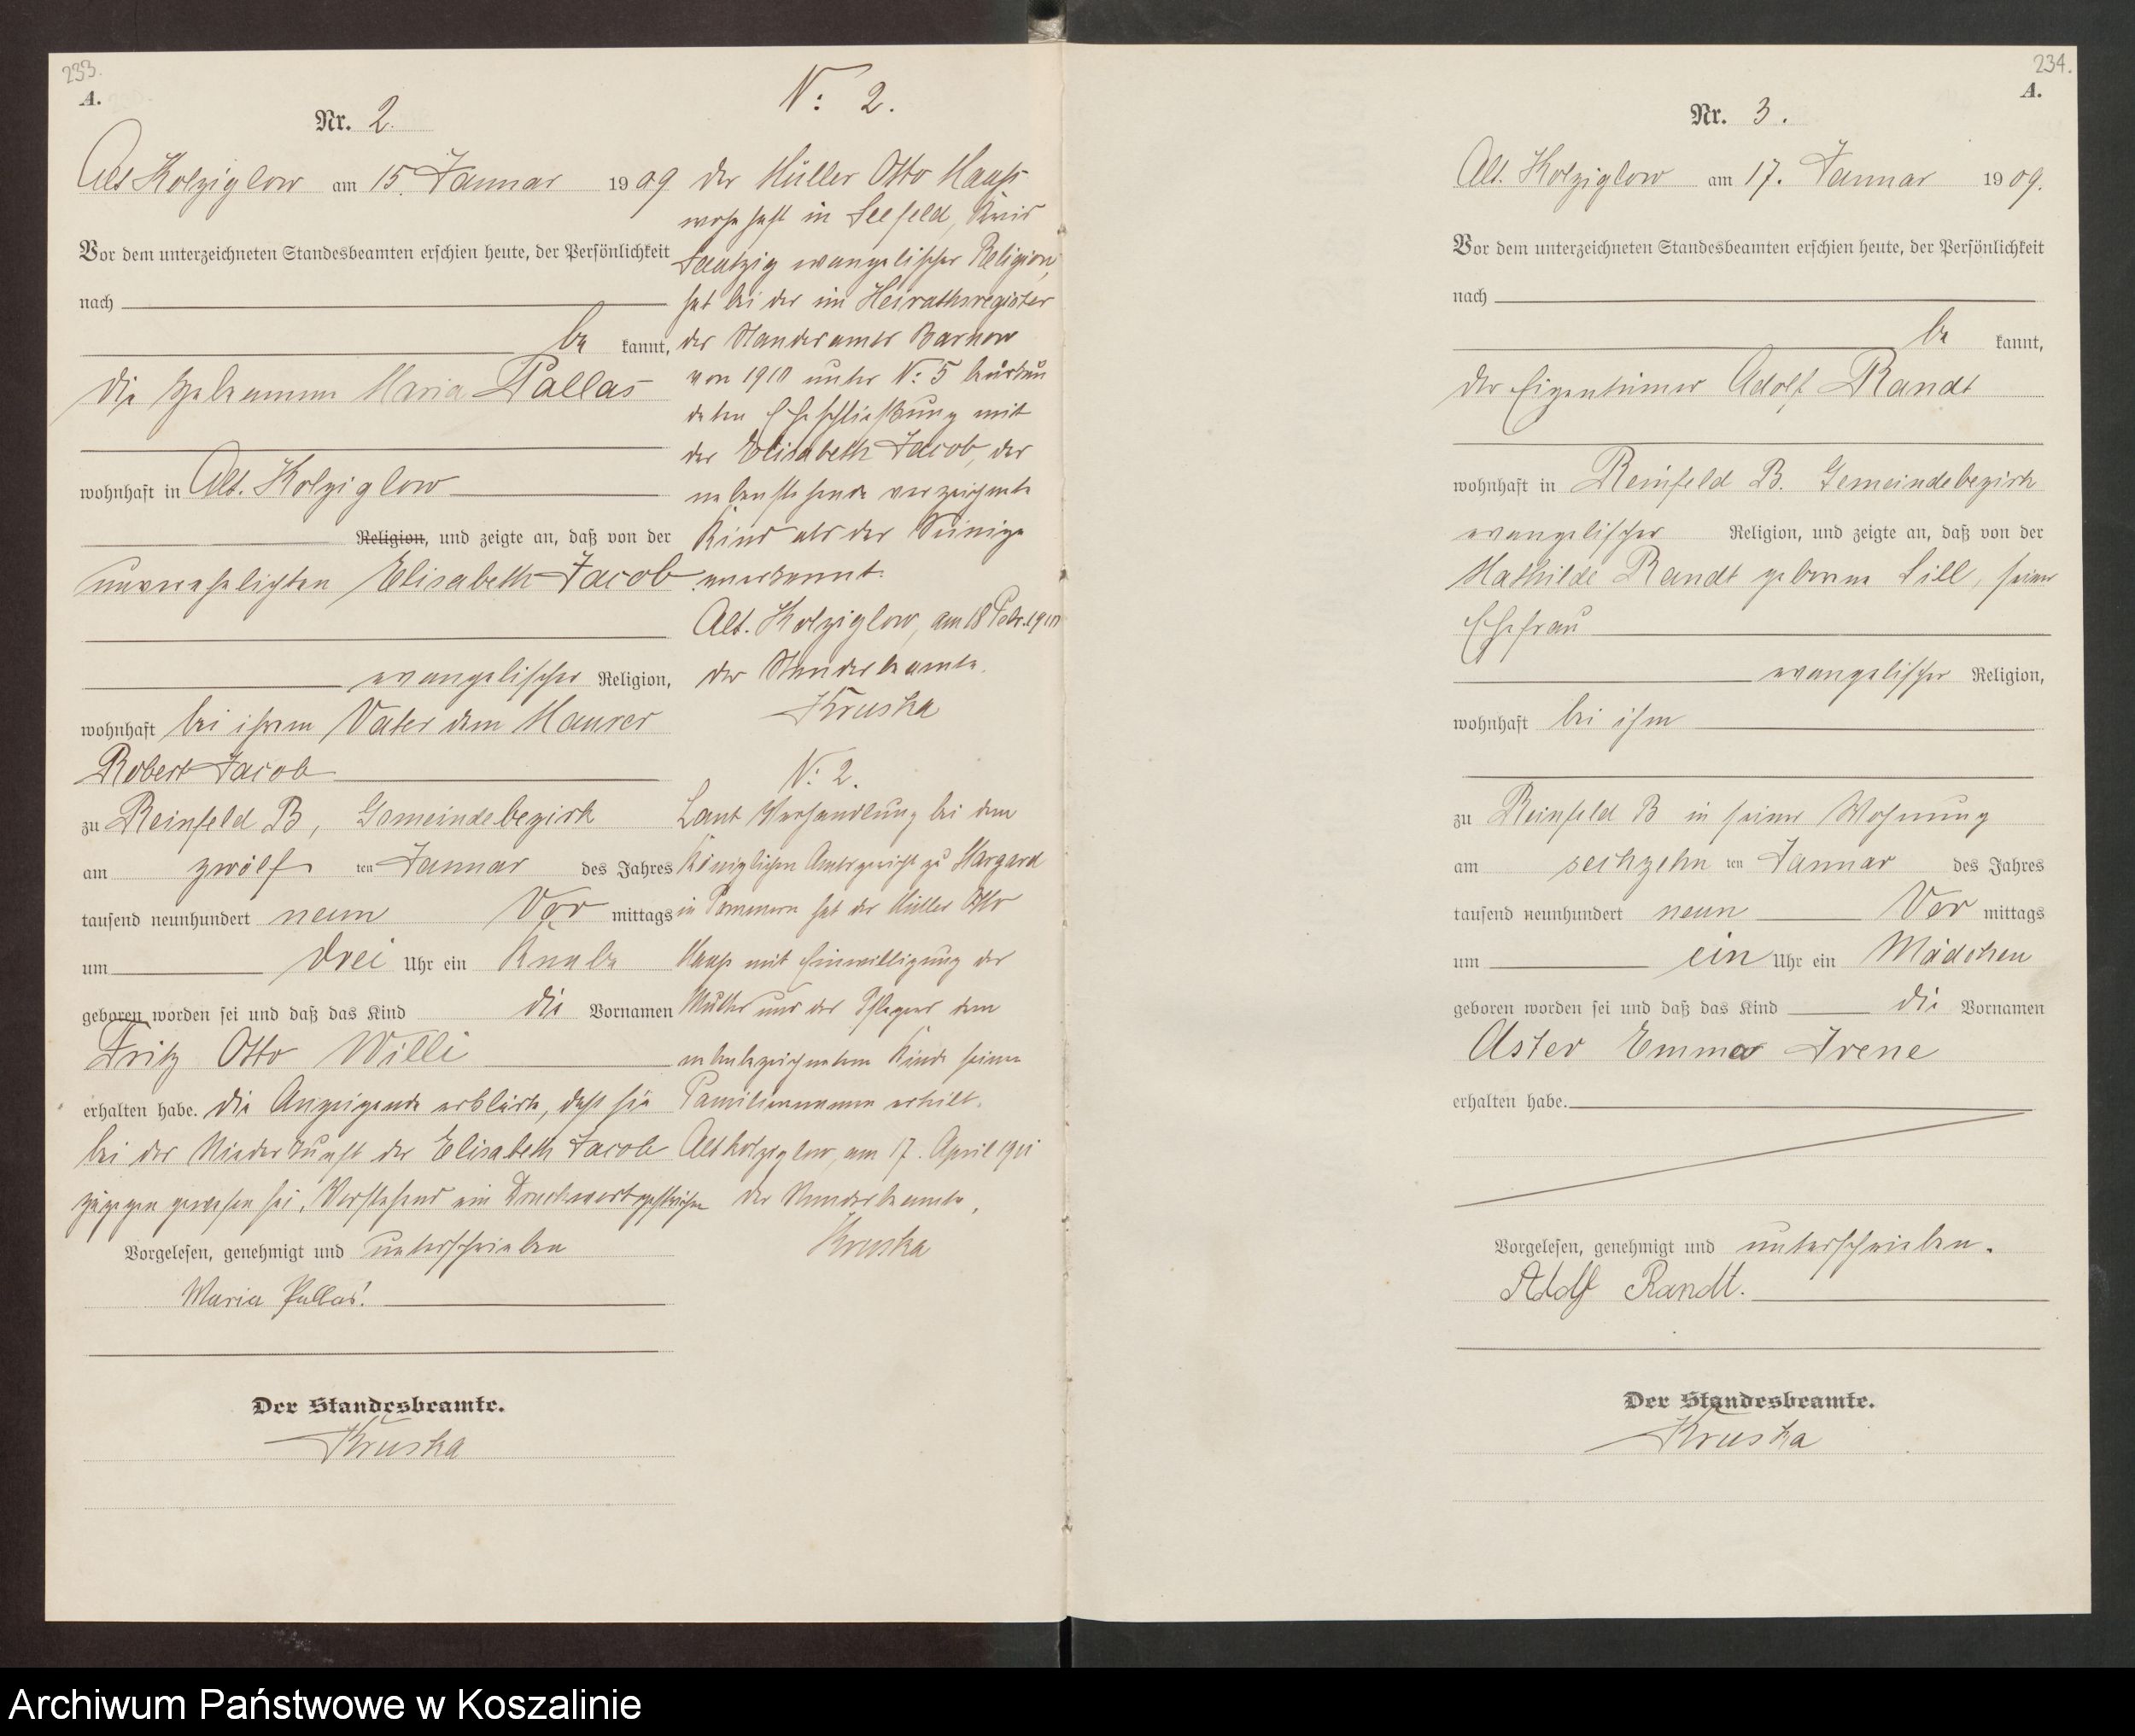 233.
A.
Nr. 2.
Alt Kolziglow am 15. Januar 1909
Vor dem unterzeichneten Standesbeamten erschien heute, der Persönlichkeit
nach
be kannt,
die Hebamme Maria Pallas
wohnhaft in Alt. Kolziglow
Religion, und zeigte an, daß von der
unverehelichten Elisabeth Jacob
evangelischer Religion,
wohnhaft bei ihrem Vater dem Maurer
Robert Jacob
zu Reinfeld B, Gemeindebezirk
am zwölf ten Januar des Jahres
tausend neunhundert neun Vor mittags
um drei Uhr ein Knabe
geboren worden sei und daß das Kind die Vornamen
Fritz Otto Willi
erhalten habe. Die Anzeigende erklärte, daß sie
bei der Niederkunft der Elisabeth Jacob
zugegen gewesen sei. Vorstehend ein Druckwort gestrichen
Vorgelesen, genehmigt und unterschrieben
Maria Pallas.
Der Standesbeamte.
Kruska
N: 2.
Der Müller Otto
wohnhaft in Seefeld, Kreis
Saatzig evangelischer Religion,
hat bei der im Heirathsregister
des Standesamts Barnow
von 1910 unter N: 5 beurkun
deten Eheschließung mit
der Elisabeth Jacob, das
nebenstehende verzeichnete
Kind als das Seinige
anerkannt.
Alt. Kolziglow, am 18 Febr. 1910
Der Standesbeamte.
Kruska
N: 2.
Laut Verhandlung bei dem
Königlichen Amtsgericht zu Stargard
in Pommern hat der Müller Otto
mit Einwilligung der
Mutter und des Pflegers dem
nebenbezeichneten Kinde seinen
Familiennamen erteilt.
Alt Kolziglow, am 17. April 1911
Der Standesbeamte,
Kruska
234.
A.
Nr. 3.
Alt. Kolziglow am 17. Januar 1909.
Vor dem unterzeichneten Standesbeamten erschien heute, der Persönlichkeit
nach
be kannt,
der Eigentümer Adolf Randt
wohnhaft in Reinfeld B. Gemeindebezirk
evangelischer Religion, und zeigte an, daß von der
Mathilde Randt geborene Lill, seiner
Ehefrau
evangelischer Religion,
wohnhaft bei ihm
zu Reinfeld B in seiner Wohnung
am sechzehn ten Januar des Jahres
tausend neunhundert neun Vor mittags
um ein Uhr ein Mädchen
geboren worden sei und daß das Kind die Vornamen
Aster Emma Irene
erhalten habe.
Vorgelesen, genehmigt und unterschrieben.
Adolf Randt.
Der Standesbeamte.
Kruska
Archiwum Państwowe w Koszalinie